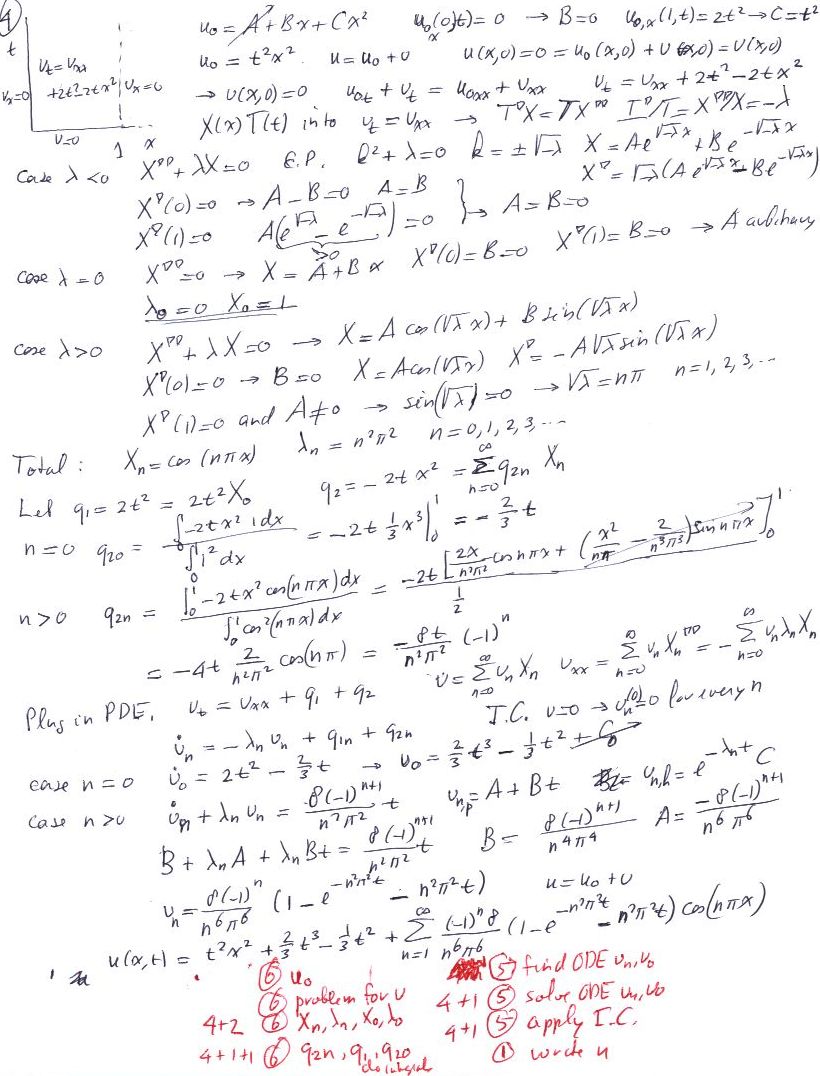 4
u₀ = A + Bx + Cx²   u₀ₓ(0,t) = 0 → B=0   u₀,ₓ(1,t) = 2t² → C=t²
t   u₀ = t²x².   u = u₀ + v   u(x,0) = 0 = u₀(x,0) + v(x,0) = v(x,0)
vₓ=0   vₜ=vₓₓ +2t²-2tx²   vₓ=0   → v(x,0)=0   u₀ₜ + vₜ = u₀ₓₓ + vₓₓ   vₜ = vₓₓ + 2t² - 2tx²
v=0   1   x   X(x)T(t) into vₜ = vₓₓ → T'X = TX'' T'/T = X''/X = -λ
Case λ<0   X'' + λX = 0   E.P.   k² + λ = 0   k = ±√-λ   X = Ae^{√-λ x} + Be^{-√-λ x}
X'(0)=0 → A-B=0   A=B   X' = √-λ (Ae^{√-λ x} - Be^{-√-λ x})
X'(1)=0   A(e^{√-λ} - e^{-√-λ}) = 0   } → A=B=0
>0
case λ=0   X''=0 → X = A+Bx   X'(0)=B=0   X'(1)=B=0 → A arbitrary
λ₀=0   X₀=1
case λ>0   X'' + λX = 0 → X = A cos(√λ x) + B sin(√λ x)
X'(0)=0 → B=0   X = A cos(√λ x)   X' = -A√λ sin(√λ x)
X'(1)=0 and A≠0 → sin(√λ)=0 → √λ = nπ   n=1,2,3,...
Total:   Xₙ = cos(nπx)   λₙ = n²π²   n=0,1,2,3,...
Let q₁ = 2t² = 2t²X₀   q₂ = -2t x² = Σ_{n=0}^{∞} q₂ₙ Xₙ
n=0   q₂₀ = ∫₀¹ -2tx² 1dx / ∫₀¹ 1² dx = -2t ⅓x³|₀¹ = -⅔t
n>0   q₂ₙ = ∫₀¹ -2tx² cos(nπx)dx / ∫₀¹ cos²(nπx)dx = -2t[2x/(n²π²) cos nπx + (x²/(nπ) - 2/(n³π³)) sin nπx]₀¹ / ½
= -4t 2/(n²π²) cos(nπ) = -8t/(n²π²) (-1)ⁿ
v = Σ_{n=0}^{∞} vₙXₙ   vₓₓ = Σ_{n=0}^{∞} vₙXₙ'' = -Σ_{n=0}^{∞} vₙλₙXₙ
Plug in PDE.   vₜ = vₓₓ + q₁ + q₂
I.C. v=0 → vₙ(0)=0 for every n
v̇ₙ = -λₙvₙ + q₁ₙ + q₂ₙ
case n=0   v̇₀ = 2t² - ⅔t → v₀ = ⅔t³ - ⅓t² + C₀
case n>0   v̇ₙ + λₙvₙ = 8(-1)ⁿ⁺¹/(n²π²) t   vₙ,p = A+Bt   vₙ,h = e^{-λₙt} C
B + λₙA + λₙBt = 8(-1)ⁿ⁺¹/(n²π²) t   B = 8(-1)ⁿ⁺¹/(n⁴π⁴)   A = -8(-1)ⁿ⁺¹/(n⁶π⁶)
vₙ = 8(-1)ⁿ/(n⁶π⁶) (1 - e^{-n²π²t} - n²π²t)   u = u₀+v
u(x,t) = t²x² + ⅔t³ - ⅓t² + Σ_{n=1}^{∞} (-1)ⁿ8/(n⁶π⁶) (1 - e^{-n²π²t} - n²π²t) cos(nπx)
6 u₀
6 problem for v
4+2 6 Xₙ, λₙ, X₀, λ₀
4+1+1 6 q₂ₙ, q₁, q₂₀
do integral
5 find ODE vₙ, v₀
4+1 5 solve ODE vₙ, v₀
4+1 5 apply I.C.
1 write u